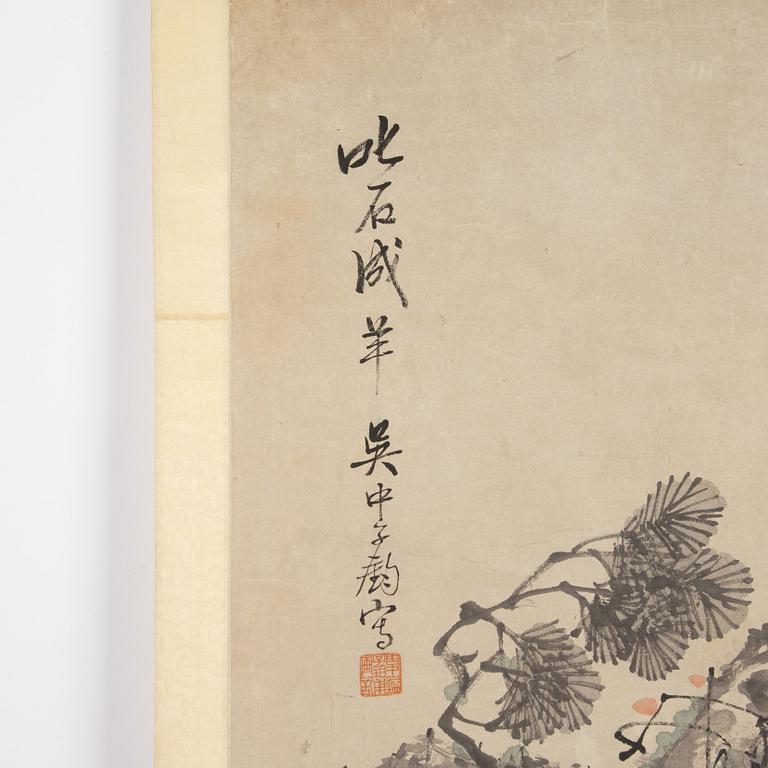 叱石成羊 吳中子鶴寫